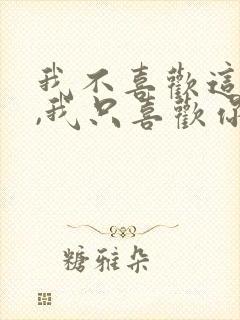 我不喜歡這
,我只喜歡你
糖雅朵